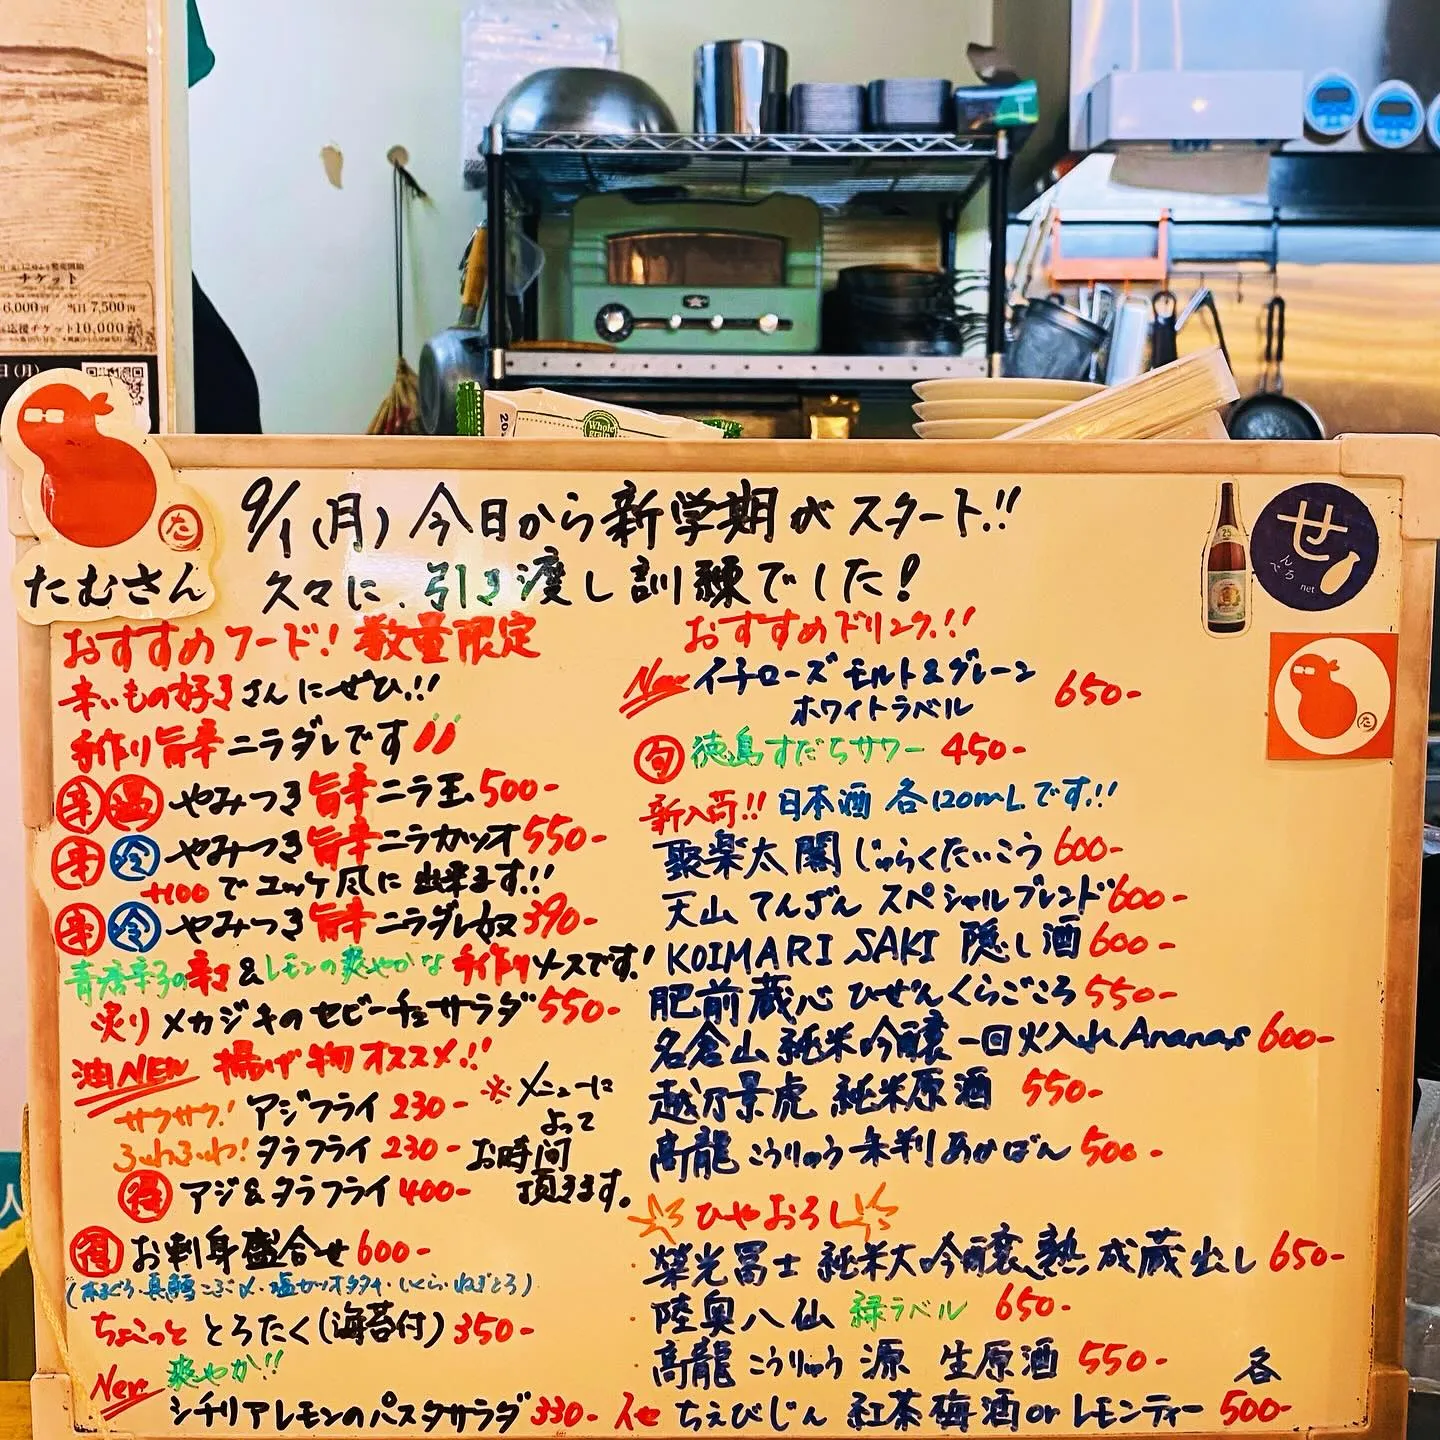 チケット
6,000円 当日 7,500円
応援チケット10,000円
日(月)
Whole grain
た
たむさん
せ
んべろ
net
た
9/1(月) 今日から新学期がスタート!!
久々に、引き渡し訓練でした!
おすすめフード! 数量限定
辛いもの好きさんにぜひ!!
手作り旨辛ニラダレです
辛 温 やみつき旨辛ニラ玉 500-
辛 冷 やみつき旨辛ニラカツオ 550-
+100でユッケ風に出来ます!!
辛 冷 やみつき旨辛ニラダレ奴 390-
青唐辛子の辛さ&レモンの爽やかな手作りソースです!
炙りメカジキのセビーチェサラダ 550-
油NEW 揚げ物オススメ!!
サクサク! アジフライ 230-
ふわふわ! タラフライ 230-
得 アジ&タラフライ 400-
※メニューに
よって
お時間
頂きます。
得 お刺身盛合せ 600-
(本まぐろ・真鯛こぶ〆・塩カツオタタキ・いくら・ねぎとろ)
ちょこっと とろたく(海苔付) 350-
New 爽やか!!
シチリアレモンのパスタサラダ 330-
おすすめドリンク!!
New イチローズ モルト&グレーン
ホワイトラベル 650-
旬 徳島すだちサワー 450-
新入荷!! 日本酒 各120mLです!!
聚楽太閤 じゅらくたいこう 600-
天山 てんざん スペシャルブレンド 600-
KOIMARI SAKI 隠し酒 600-
肥前蔵心 ひぜんくらごころ 550-
名倉山 純米吟醸 一回火入れ Ananas 600-
越乃景虎 純米原酒 550-
高龍 こうりゅう 朱判 あかばん 500-
ひやおろし
榮光冨士 純米大吟醸 熟成蔵出し 650-
陸奥八仙 緑ラベル 650-
高龍 こうりゅう 源 生原酒 550-
イセ ちえびじん 紅茶梅酒 or レモンティー 各500-